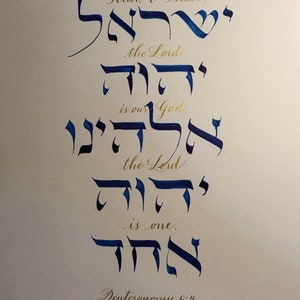 ישראל
the Lord
יהוה
is our God,
אלהינו
the Lord
יהוה
is one.
אחד
Deuteronomy 6:4